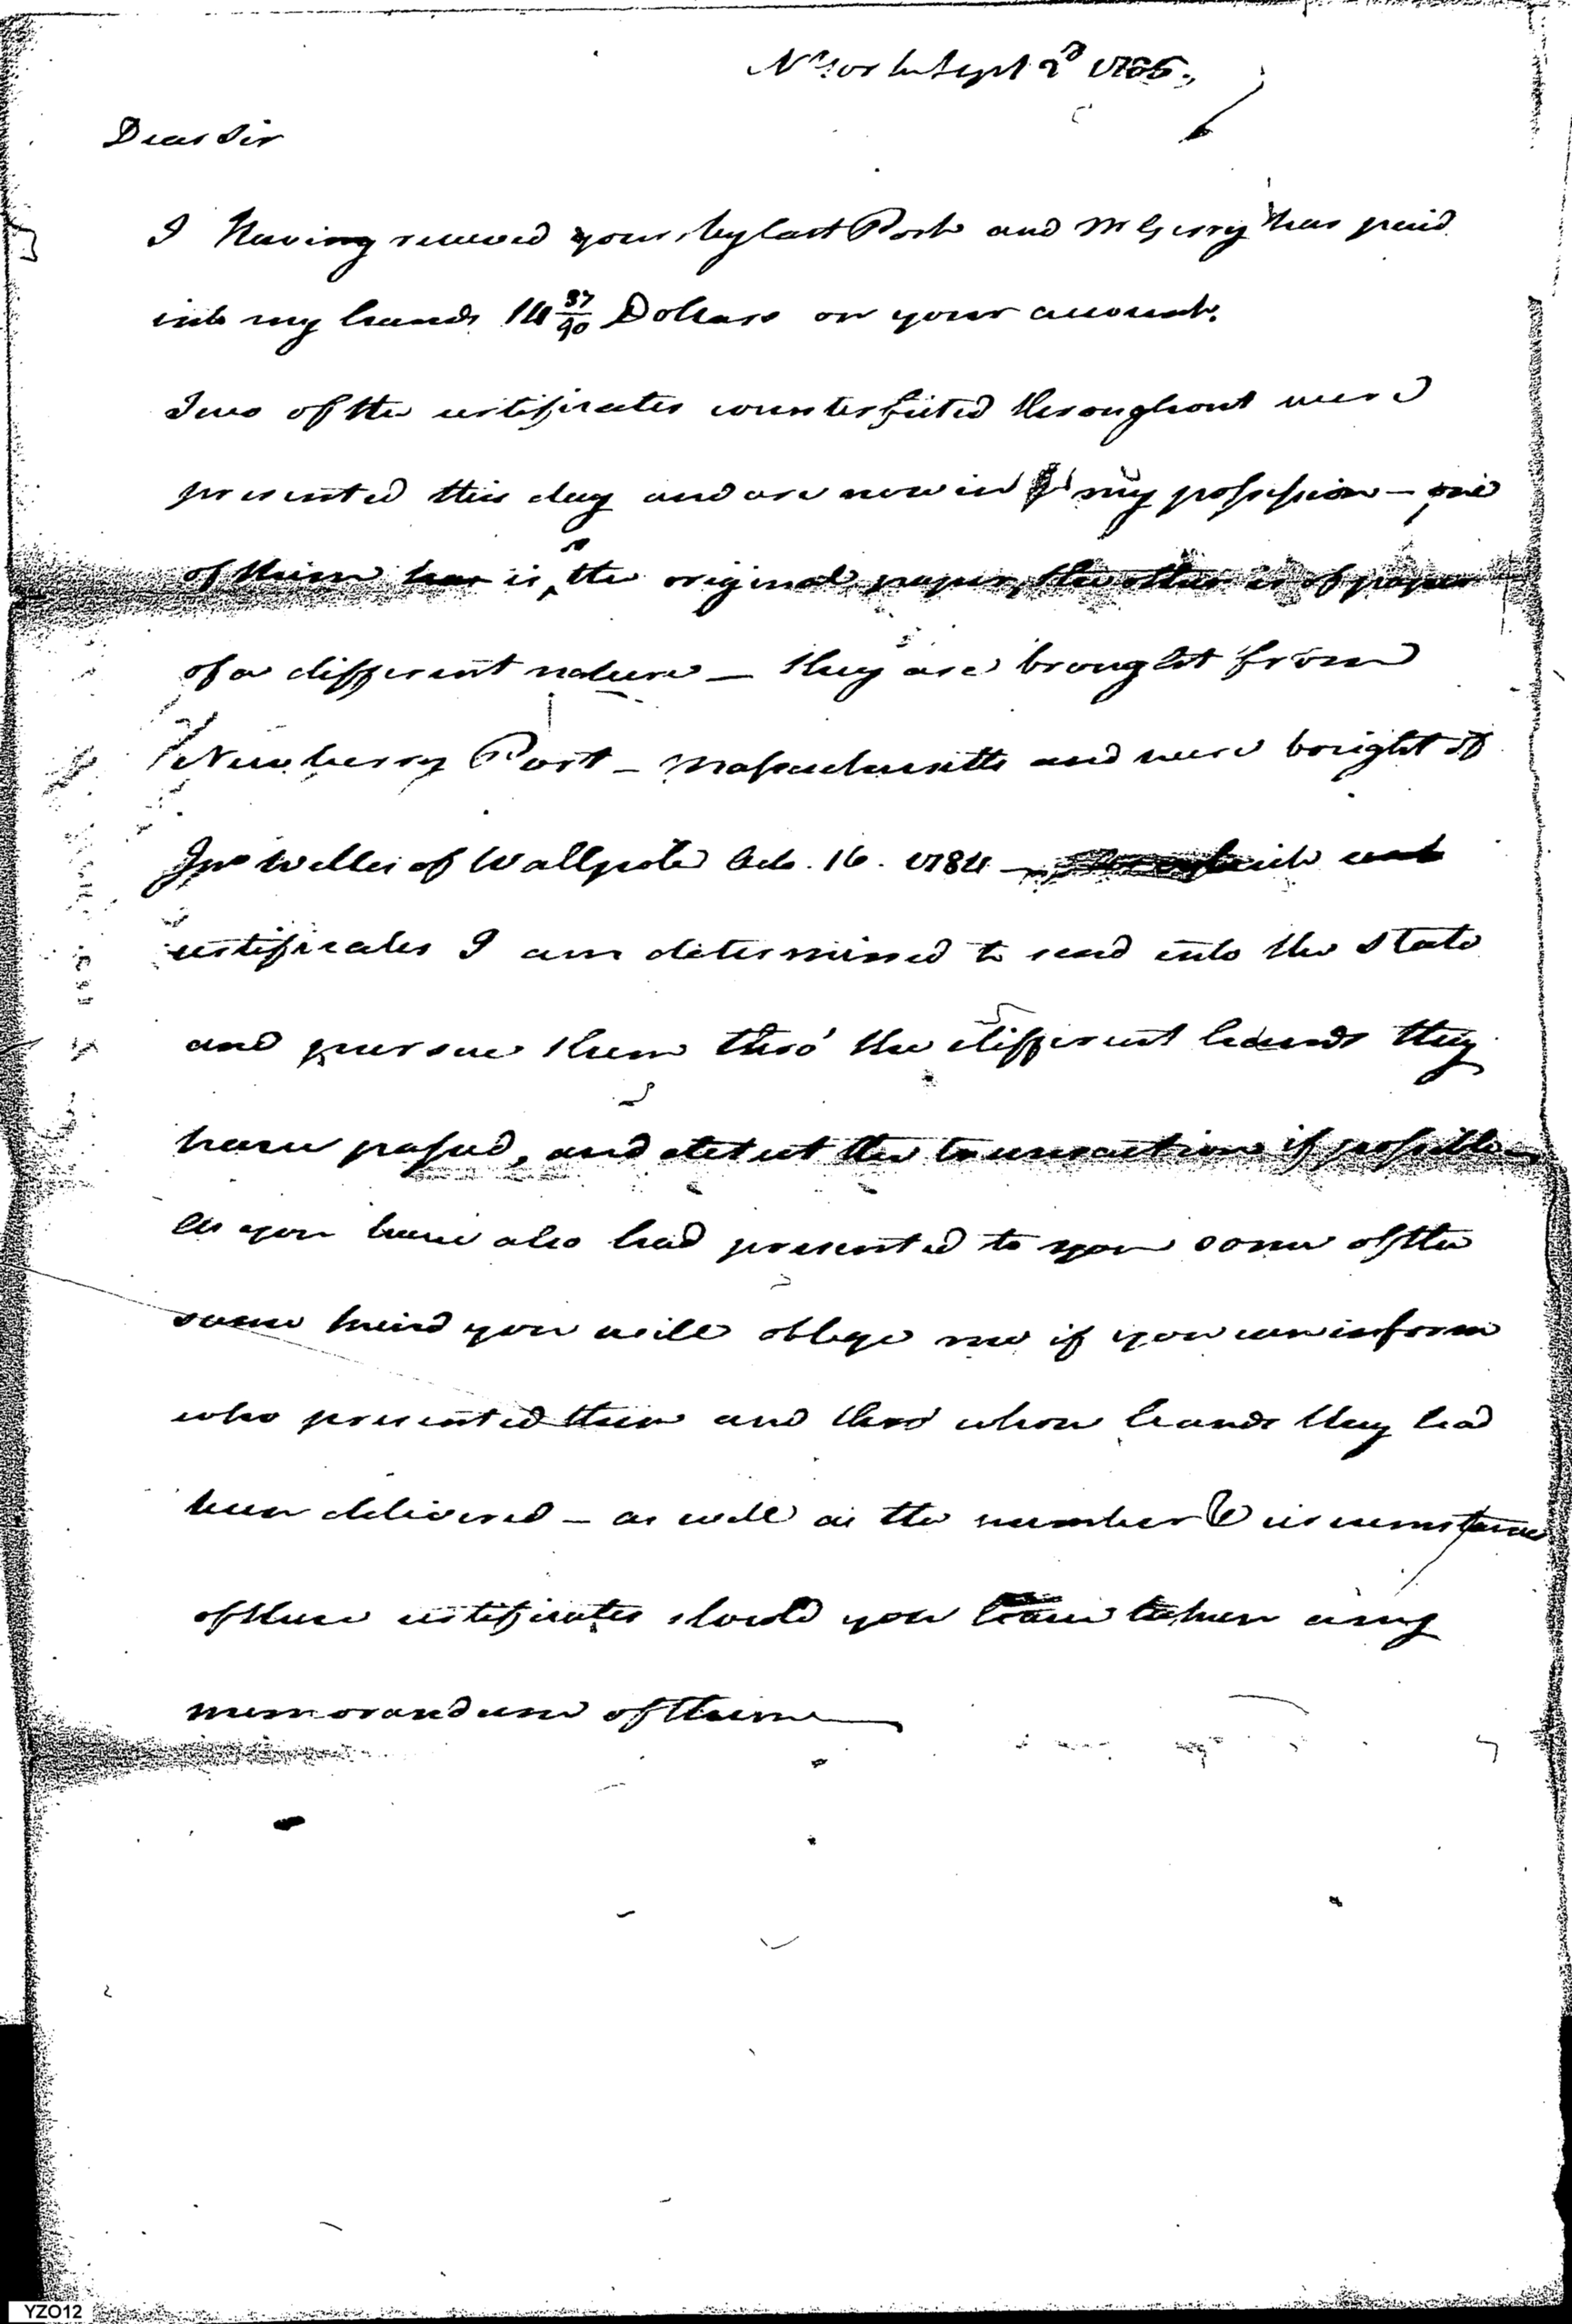 N York Sept 2d 1785.
Dear Sir
I Having received yours by last Post and Mr Gerry has paid
into my hands 14 37/90 Dollars on your account.
Two of the certificates counterfeited throughout were
presented this day and are now in my possession — one
of them has is on the original paper, the other is of paper
of a different nature — they are brought from
Newberry Port — Massachusetts and were bought of
Jno Willes of Wallpole Octo. 16. 1784 — which
certificates I am determined to send into the State
and pursue them thro' the different hands they
have passed, and detect the transaction if possible —
As you have also had presented to you some of the
same kind you will oblige me if you can inform
who presented them and thro' whose hands they had
been delivered — as well as the number & circumstance
of these certificates should you have taken any
memorandum of them —
YZO12